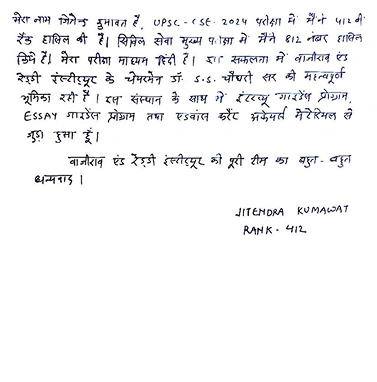 मेरा नाम जितेन्द्र कुमावत है, UPSC-CSE-2024 परीक्षा में मैंने 412 वीं
रैंक हासिल की है। सिविल सेवा मुख्य परीक्षा में मैंने 812 नंबर हासिल
किये हैं। मेरा परीक्षा माध्यम हिंदी है। इस सफलता में वाजीराव एंड
रेड्डी इंस्टीट्यूट के चेयरमेन डॉ. S.S. चौधरी सर की महत्वपूर्ण
भूमिका रही है। इस संस्थान के साथ में इंटरव्यू गाइडेंस प्रोग्राम,
ESSAY गाइडेंस प्रोग्राम तथा एडवांस करेंट अफेयर्स मेटेरियल से
जुड़ा हुआ हूं।
वाजीराव एंड रेड्डी इंस्टीट्यूट की पूरी टीम का बहुत-बहुत
धन्यवाद।
JITENDRA KUMAWAT
RANK-412